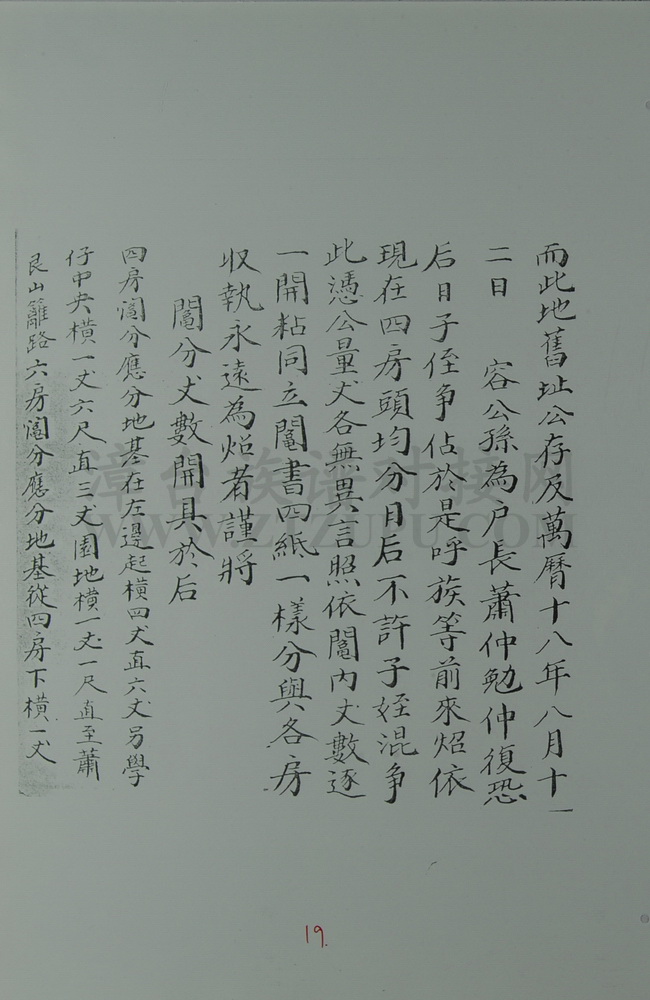 而此地舊址公存及萬曆十八年八月十一
二日 容公孫為户長蕭仲勉仲復恐
后日子侄争佔於是呼族等前來炤依
現在四房頭均分日后不許子姪混争
此憑公量丈各無異言照依鬮内丈數逐
一開粘同立鬮書四紙一樣分與各房
収執永遠為炤者謹將
鬮分丈數開具於后
四房鬮分應分地基在左邊起横四丈直六丈另學
仔中央横一丈六尺直三丈園地横一丈一尺直至蕭
艮山籬路六房鬮分應分地基從四房下横一丈
漳台族谱对接网
WWW.ZTZUPU.COM
19.